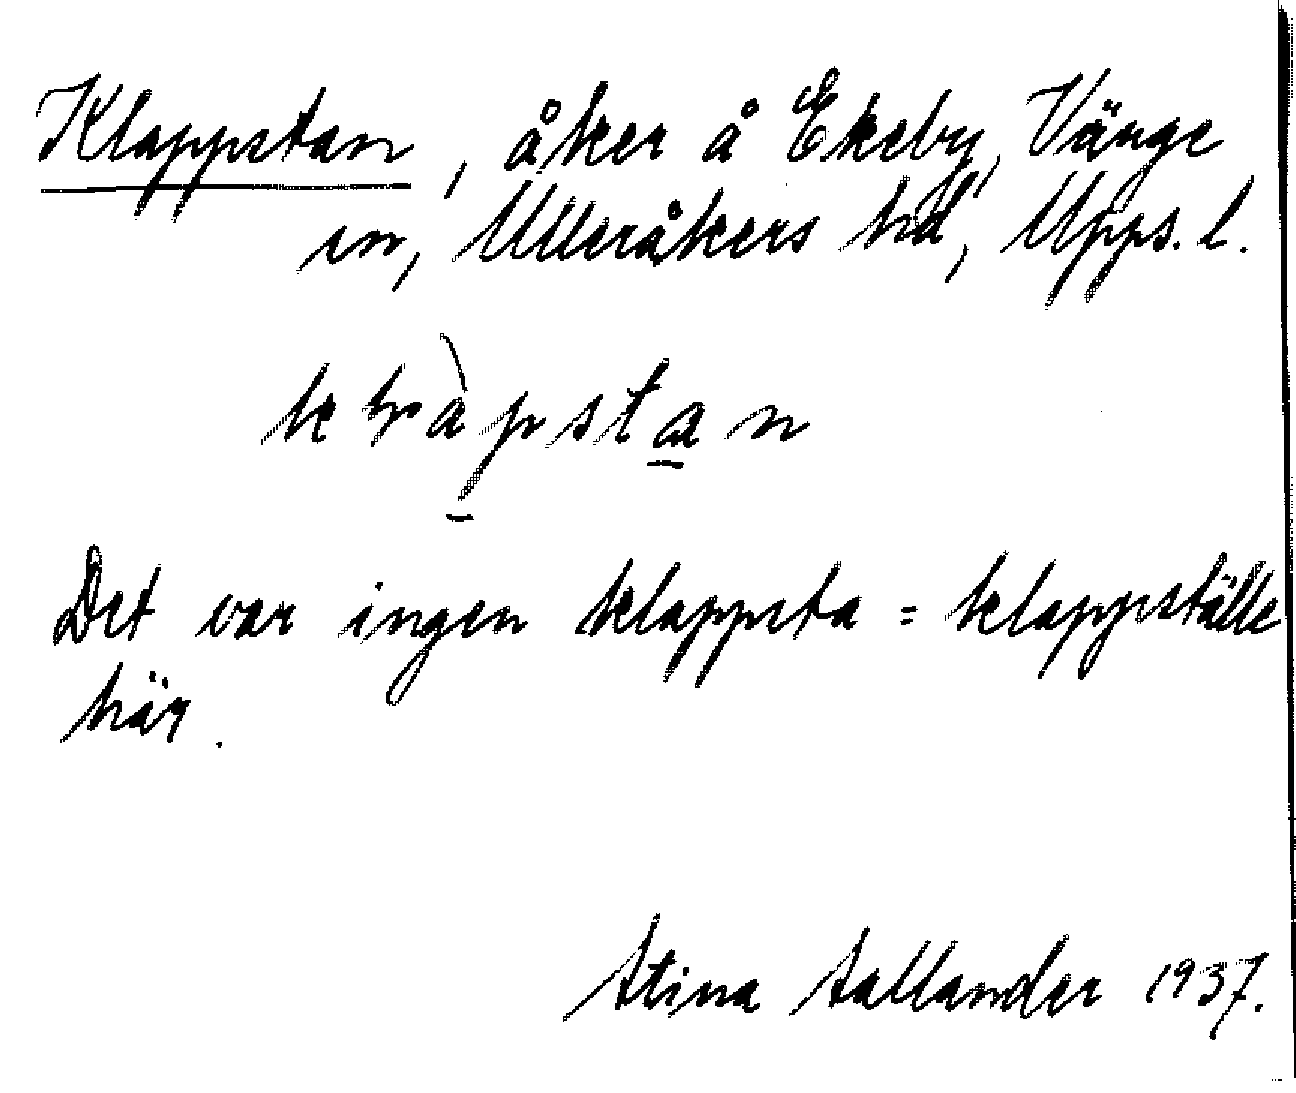 Klappstan, åker å Ekeby, Vänge
sn, Ulleråkers hd, Upps. l.
Det var ingen klappsta = klappställe
här.
Stina Sallander 1937.